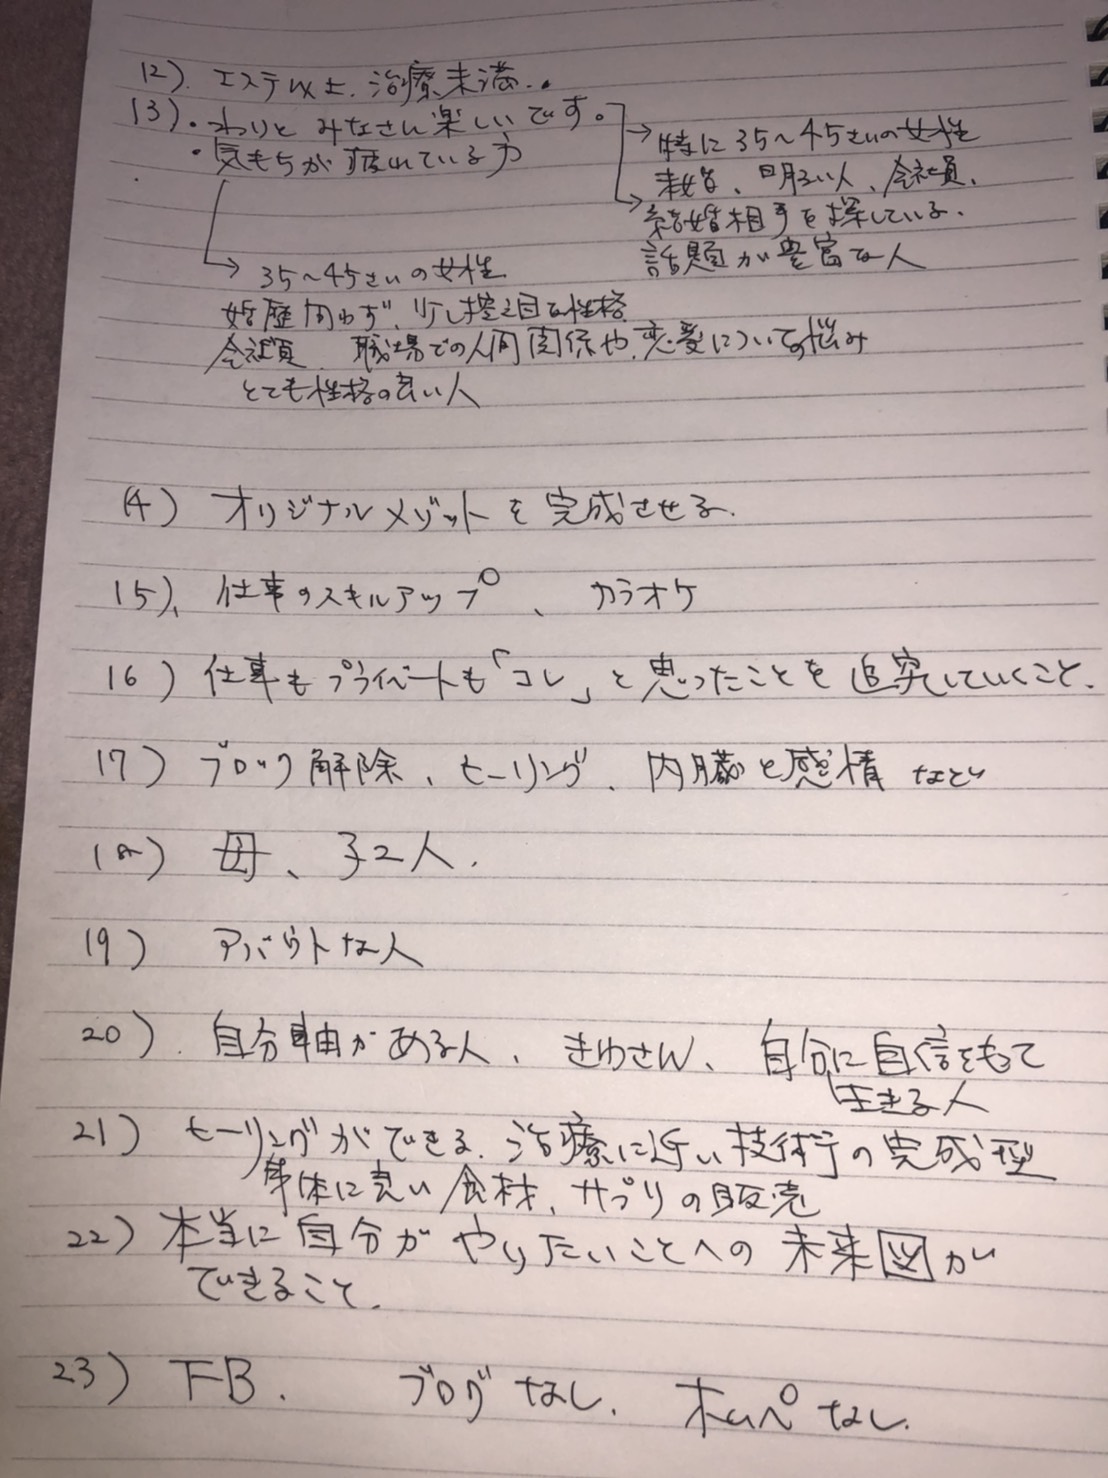 12). エステ以上、治療未満..
13)・わりと みなさん楽しいです。
・気もちが疲れている方
→特に35〜45さいの女性
未婚、明るい人、会社員、
→結婚相手を探している、
話題が豊富な人
→ 35〜45さいの女性
婚歴問わず、少し控え目な性格
会社員、職場での人間関係や、恋愛についての悩み
とても性格の良い人
14) オリジナルメゾットを完成させる.
15)、仕事のスキルアップ、 カラオケ
16) 仕事もプライベートも「コレ」と思ったことを追究していくこと.
17) ブロック解除、ヒーリング、内臓と感情 など
18) 母、子2人.
19) アバウトな人
20) . 自分軸がある人、きゆさん、自分に自信をもって
生きる人
21) ヒーリングができる、治療に近い技術の完成型
身体に良い食材、サプリの販売
22) 本当に自分がやりたいことへの未来図が
できること.
23) FB. ブログなし. ホムペなし.